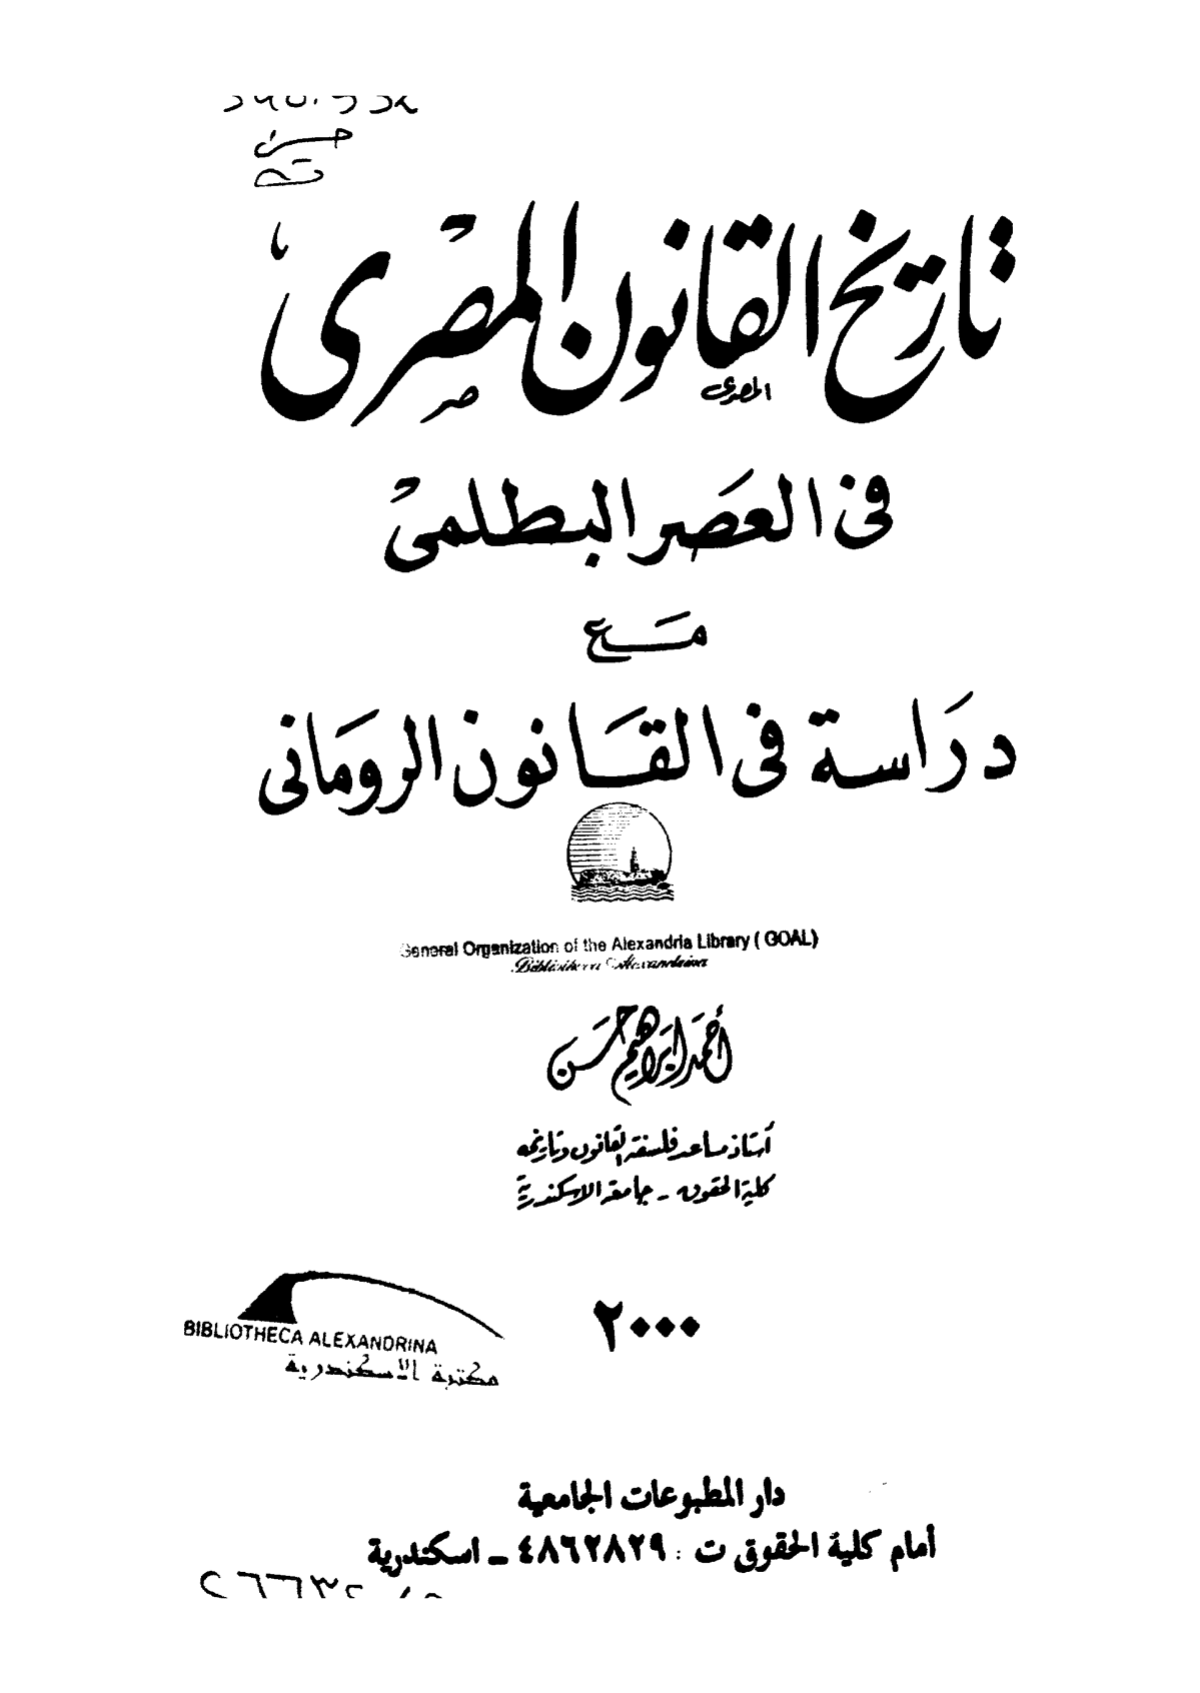 حسن
تاريخ القانون المصرى
فى العصر البطلمى
مع
دراسة فى القانون الرومانى
General Organization of the Alexandria Library ( GOAL)
Bibliotheca Alexandrina
أحمد إبراهيم حسن
أستاذ مساعد فلسفة القانون وتاريخه
كلية الحقوق - جامعة الاسكندرية
٢٠٠٠
BIBLIOTHECA ALEXANDRINA
مكتبة الاسكندرية
دار المطبوعات الجامعية
أمام كلية الحقوق ت : ٤٨٦٢٨٢٩ ـ اسكندرية